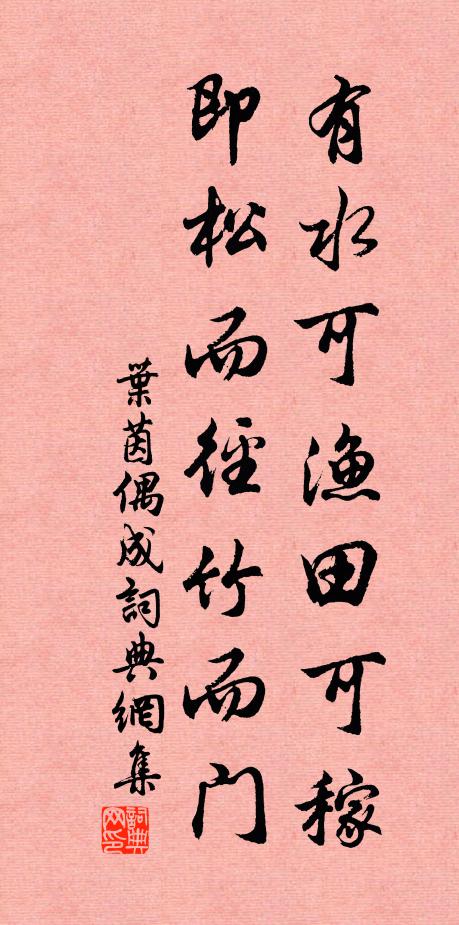 有水可漁田可稼
即松而徑竹而門
葉茵偶成詞典網集
詞典网印